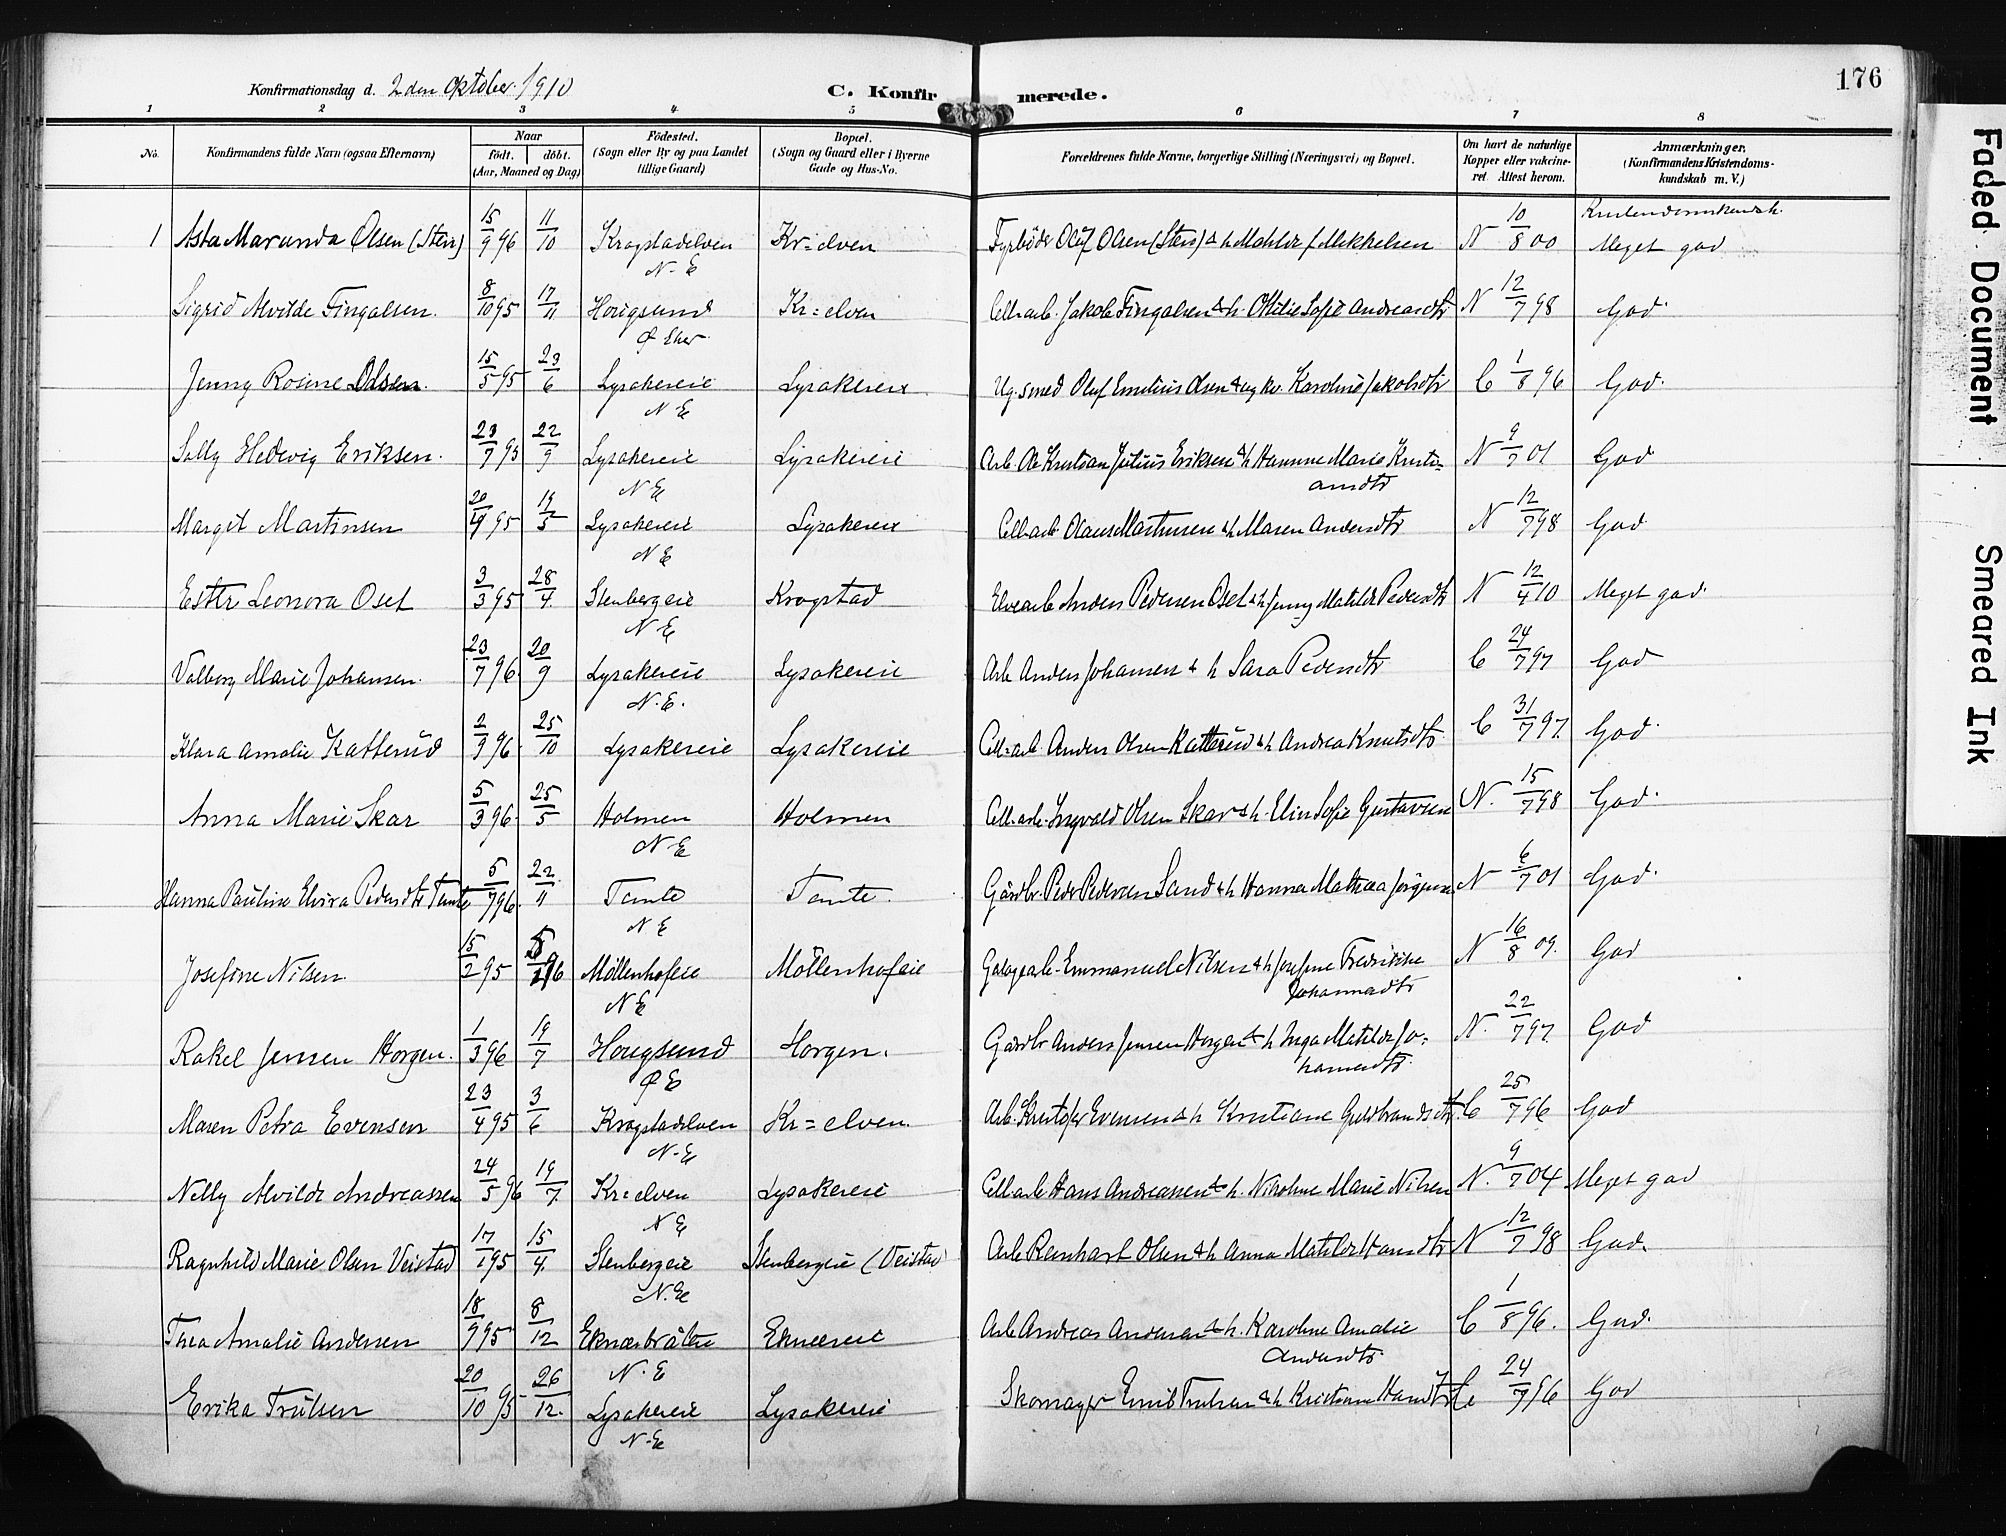 176
Konfirmationsdag d. 2den Oktober 1910
C. Konfirmerede.
1 2 3 4 5 6 7 8
No. Konfirmandens fulde Navn (ogsaa Efternavn) Naar født. døbt. (Aar, Maaned og Dag) Fødested. (Sogn eller By og paa Landet tillige Gaard) Bopæl. (Sogn og Gaard eller i Byerne Gade og Hus-No. Forældrenes fulde Navne, borgerlige Stilling (Næringsvei) og Bopæl. Om havt de naturlige Kopper eller vakcineret. Attest herom. Anmærkninger. (Konfirmandens Kristendomskundskab m. V.)
1 Asta Marunda Olsen (Sten) 15/9 96 11/10 Krogstadelven N-E Kr=elven Fyrbøder Olaf Olsen (Sten) & h Mathilde f Mikkelsen N 10/8 00 Meget god
Sigrid Alvilde Fingalsen. 8/10 95 17/11 Hougsund Ø Eker Kr=elven Cell.arb. Jakob Fingalsen & h. Ottilie Sofie Andreasdtr N 12/7 98 God.
Jenny Rosine Olsen. 15/5 95 23/6 Lysakereie N E Lysakereie Ug. smed Oluf Emilius Olsen & ug kv. Karoline Jakobsdtr C 1/8 96 God.
Solly Hedvig Eriksen. 23/7 95 22/9 Lysakereie N E Lysakereie Arb. Ole Kristian Julius Eriksen & h Hanne Marie Kristiansdtr N 9/7 01 God
Margit Martinsen 20/4 95 19/5 Lysakereie N E Lysakereie Cell.arb Olaus Martinsen & h Maren Andersdtr N 12/7 98 God
Ester Leonora Oset 3/3 95 28/4. Stenbergeie N E Krogstad Elvearb Anders Pedersen Oset & h Jenny Matilde Pedersdtr N 12/4 10 Meget god.
Valborg Marie Johansen. 23/7 96. 20/9 Lysakereie N.E. Lysakereie Arb Anders Johansen & h Sara Pedersdtr C 24/7 97 God
Klara Amalie Katterud 2/9 96. 25/10 Lysakereie Lysakereie Cell=arb. Anders Olsen Katterud & h Andrea Knutsdtr. C 31/7 97. God.
Anna Marie Skar 5/3 96. 25/5 Holmen N-E Holmen Cell.arb. Ingvald Olsen Skar & h. Elin Sofie Gustavsen N. 15/7 98 God.
Hanna Pauline Elvira Pedersdtr Tamte 5/7 96. 22/11 Tamte N E Tamte. Gårdbr. Peder Pedersen Sand & h Hanna Mathea Jørgensen N 6/7 01 God.
Josefine Nilsen 15/2 95 Møllenhofeie N E Møllenhofeie Emmanuel Nilsen & h Josefine Fredrikke Johannesdtr N 16/8 09. God
Rakel Jensen Horgen. 1/3 96 19/7 Hougsund Ø E Horgen. Gårdbr Anders Jensen Horgen & h Inga Matilde Johannesdtr. N. 22/7 97 God
Maren Petra Evensen 23/4 95 3/6 Krogstadelven N-E Kr=elven. Arb. Kristofer Evensen & h Kristiane Guldbrandsdtr. C 25/7 96 God
Nelly Alvilde Andreassen 24/5 96 19/7 Kr=elven N E Lysakereie Cell.arb Hans Andreassen & h. Nikoline Marie Nilsen N. 9/7 04 Meget god
Ragnhild Marie Olsen Veistad 17/1 95 15/4. Stenbergeie N.E Stenbergeie (Veistad Arb Reinhart Olsen & h Anna Matilde Hansdtr N 12/7 98 God.
Thea Amalie Andersen 18/9 95 8/12 Eknesbråten N. E Ekneseie Arb Andreas Andersen & h. Karoline Amalie Andersdtr. C 1/8 96. God.
Erika Trulsen 20/10 95 26/12. Lysakereie N-E Lysakereie Skomager Emil Trulsen & h Kristiane Hansdtr C 24/7 96 God
Faded Document
Smeared Ink